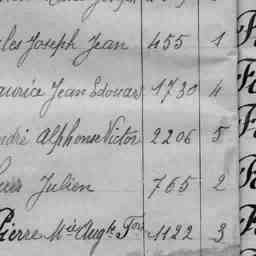 les Joseph Jean 455 1
aurice Jean Edouard 1730 4
ndré Alphonse Victor 2206 5
Julien 765 2
Pierre Mie Augte 1122 3